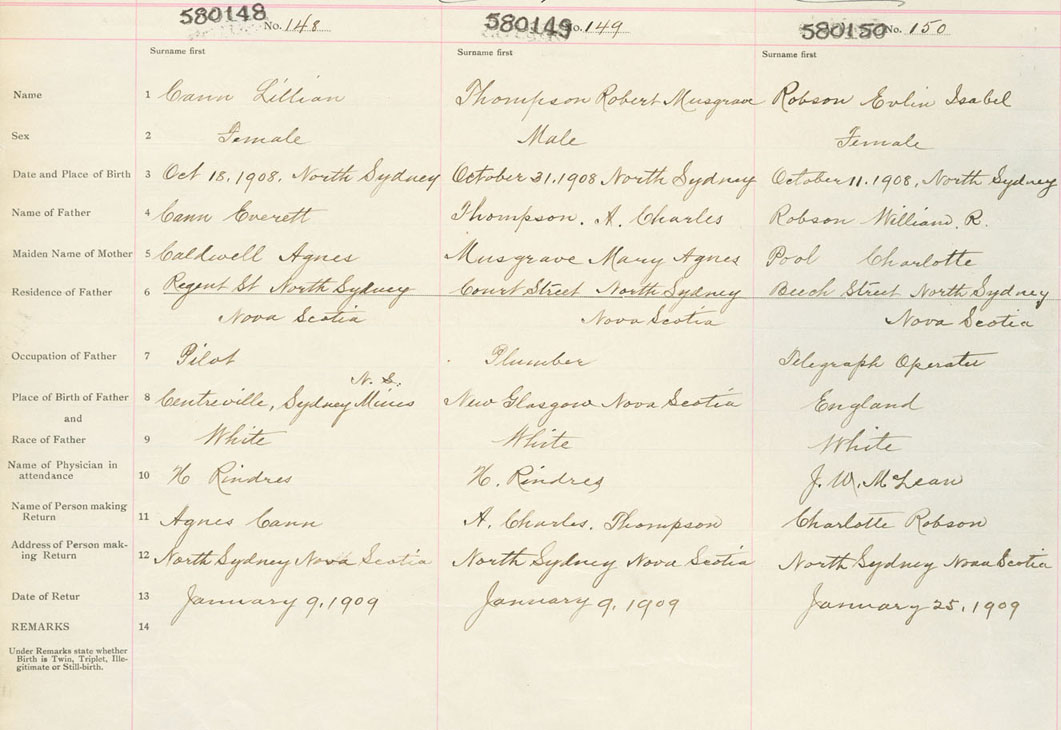 580148 No. 148 580149 No. 149 580150 No. 150
Surname first Surname first Surname first
Name 1 Cann Lillian Thompson Robert Musgrave Robson Evlin Isabel
Sex 2 Female Male Female
Date and Place of Birth 3 Oct 18, 1908, North Sydney October 31. 1908 North Sydney October 11. 1908, North Sydney
Name of Father 4 Cann Everett Thompson. A. Charles Robson William. R.
Maiden Name of Mother 5 Caldwell Agnes Musgrave Mary Agnes Pool Charlotte
Residence of Father 6 Regent St North Sydney Court Street North Sydney Beech Street North Sydney
Nova Scotia Nova Scotia Nova Scotia
Occupation of Father 7 Pilot Plumber Telegraph Operator
N. S.
Place of Birth of Father 8 Centreville, Sydney Mines New Glasgow Nova Scotia England
and
Race of Father 9 White White White
Name of Physician in
attendance 10 H Rindres H. Rindres J. W. McLean
Name of Person making
Return 11 Agnes Cann A. Charles. Thompson Charlotte Robson
Address of Person mak-
ing Return 12 North Sydney Nova Scotia North Sydney Nova Scotia North Sydney Nova Scotia
Date of Retur 13 January 9, 1909 January 9, 1909 January 25, 1909
REMARKS 14
Under Remarks state whether
Birth is Twin, Triplet, Ille-
gitimate or Still-birth.